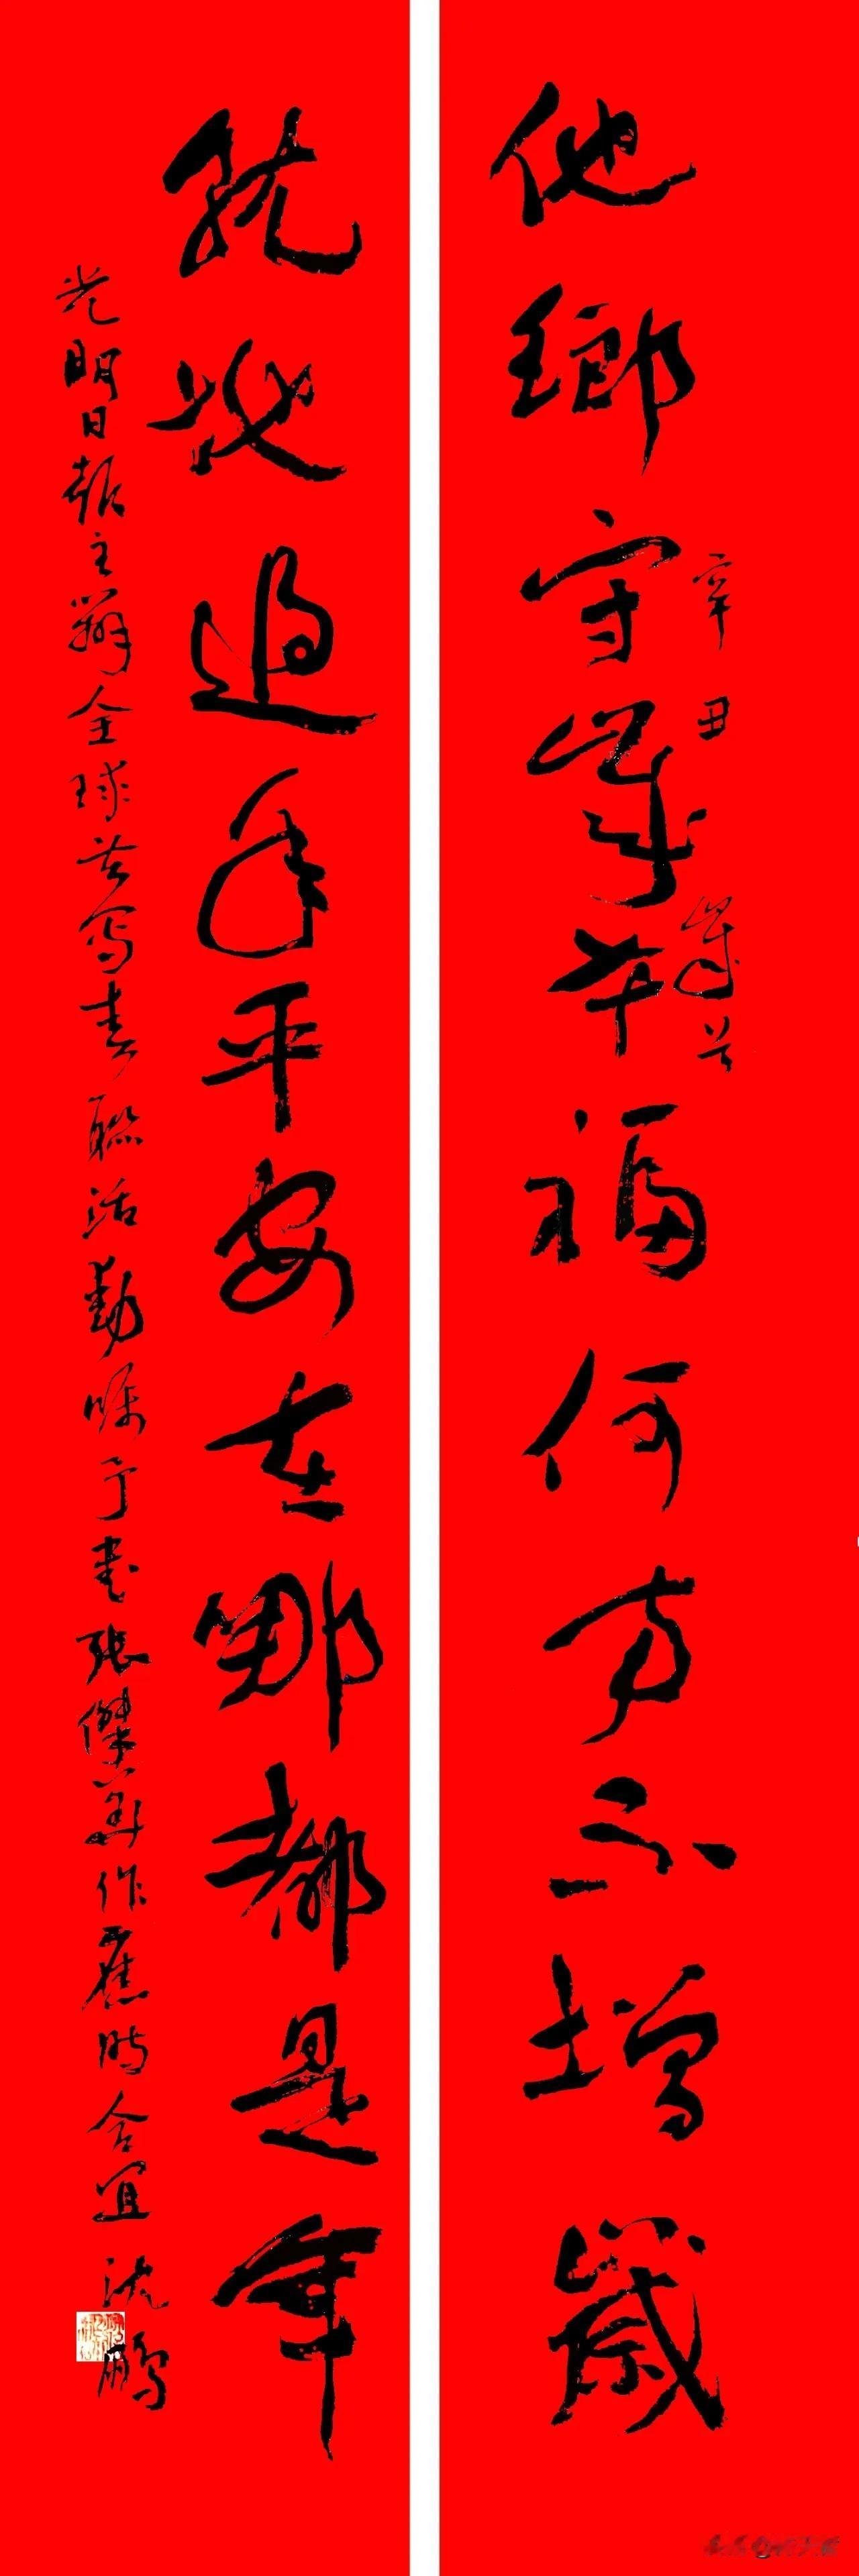 他鄉守歲幸福何方不增歲
辛丑歲首
就地過年平安在哪都是年
光明日報主辦全球共寫春聯活動囑予書張傑華作舊時合宜 沈鵬